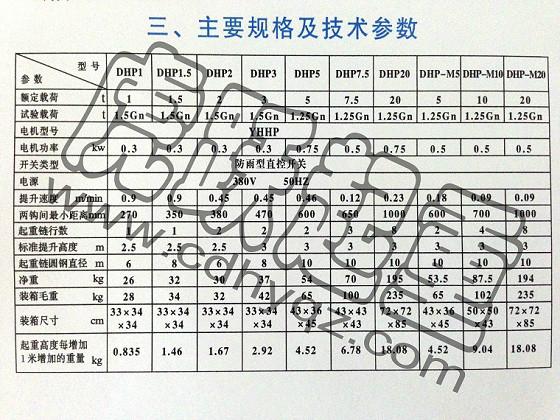 三、主要规格及技术参数
型号 参数 DHP1 DHP1.5 DHP2 DHP3 DHP5 DHP7.5 DHP20 DHP-M5 DHP-M10 DHP-M20
额定载荷 t 1 1.5 2 3 5 7.5 20 5 10 20
试验载荷 t 1.5Gn 1.5Gn 1.5Gn 1.5Gn 1.25Gn 1.25Gn 1.25Gn 1.25Gn 1.25Gn 1.25Gn
电机型号 YHHP
电机功率 kw 0.3 0.3 0.3 0.3 0.75 0.5 0.75 0.5 0.5 0.5
开关类型 防雨型直控开关
电源 380V 50HZ
提升速度 m/min 0.9 0.9 0.45 0.45 0.46 0.12 0.23 0.18 0.09 0.09
两钩间最小距离mm 270 350 380 470 600 650 1000 600 700 1000
起重链行数 1 1 2 2 2 3 8 2 4 8
标准提升高度 m 2.5 2.5 2.5 3 3 3 3 3 3 3
起重链圆钢直径 m 6 8 6 8 10 10 10 10 10 10
净重 kg 26 32 30 37 54 70 195 53.5 87.5 194
装箱毛重 kg 28 34 32 42 65 100 235 65 102 235
装箱尺寸 cm 33×34×34 33×34×34 33×34×34 33×34×34 43×36×45 43×43×43 72×72×85 43×36×45 50×50×43 72×72×85
起重高度每增加
1米增加的重量 kg 0.835 1.46 1.67 2.92 4.52 6.78 18.08 4.52 9.04 18.08
www.cdhyqz.com